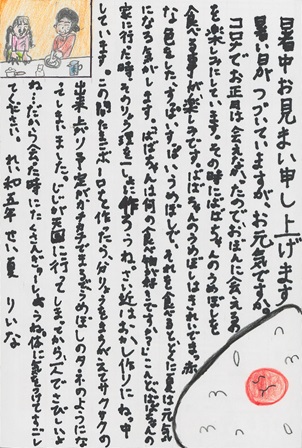 暑中お見まい申し上げます
暑い日がつづいていますが、お元気ですか。
コロナでお正月は会えなかったのでおぼんに会えるの
を楽しみにしています。その時にばばちゃんのうめぼしを
食べる事が楽しみです。ばばちゃんのうめぼしはきれいでまっ赤
な色をしたすっぱいすっぱいうめぼしで、それを食べるとじごくに夏は元気
になる気がします。ばばちゃんは何の食べ物が好きですか？こんどばばちゃんの
家に行った時、そのりょう理を一しょに作ろうね。さい近はおかし作りにね。中
しています。この間たまごボーロを作ったら、分りょうをまちがえてサクサクの
出来上がり予定がカチカチでまるでうめぼしのタネのようにな
ってしまいました。じじが天国に行ってしまってから、一人でさびしいよ
ね…だから会た時にたくさん話しようね。体に気をつけてすごし
てください。れい和五年 せい夏 りいな